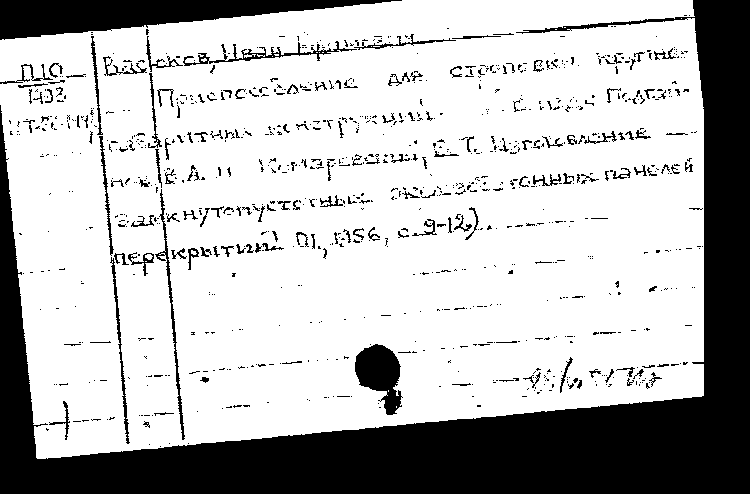 П10
1493
Иван
Приспособление для строповки крупно-
габаритных конструкций. В изд.: Подгай-
нов, В.А. и Комаревский, В.Т. Изготовление
замкнутопустотных железобетонных панелей
перекрытий Л., 1956, с. 9-12).